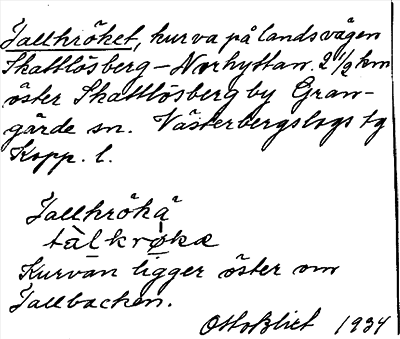 Tallkröket, kurva på landsvägen
Skattlösberg – Norhyttan. 2 1/2 km
öster Skattlösberg by Gran-
gärde sn. Västerbergslags tg
Kopp. l.
Tallkrökä
tàlkrø̀kæ
Kurvan ligger öster om
Tallbacken.
Otto Blixt 1934